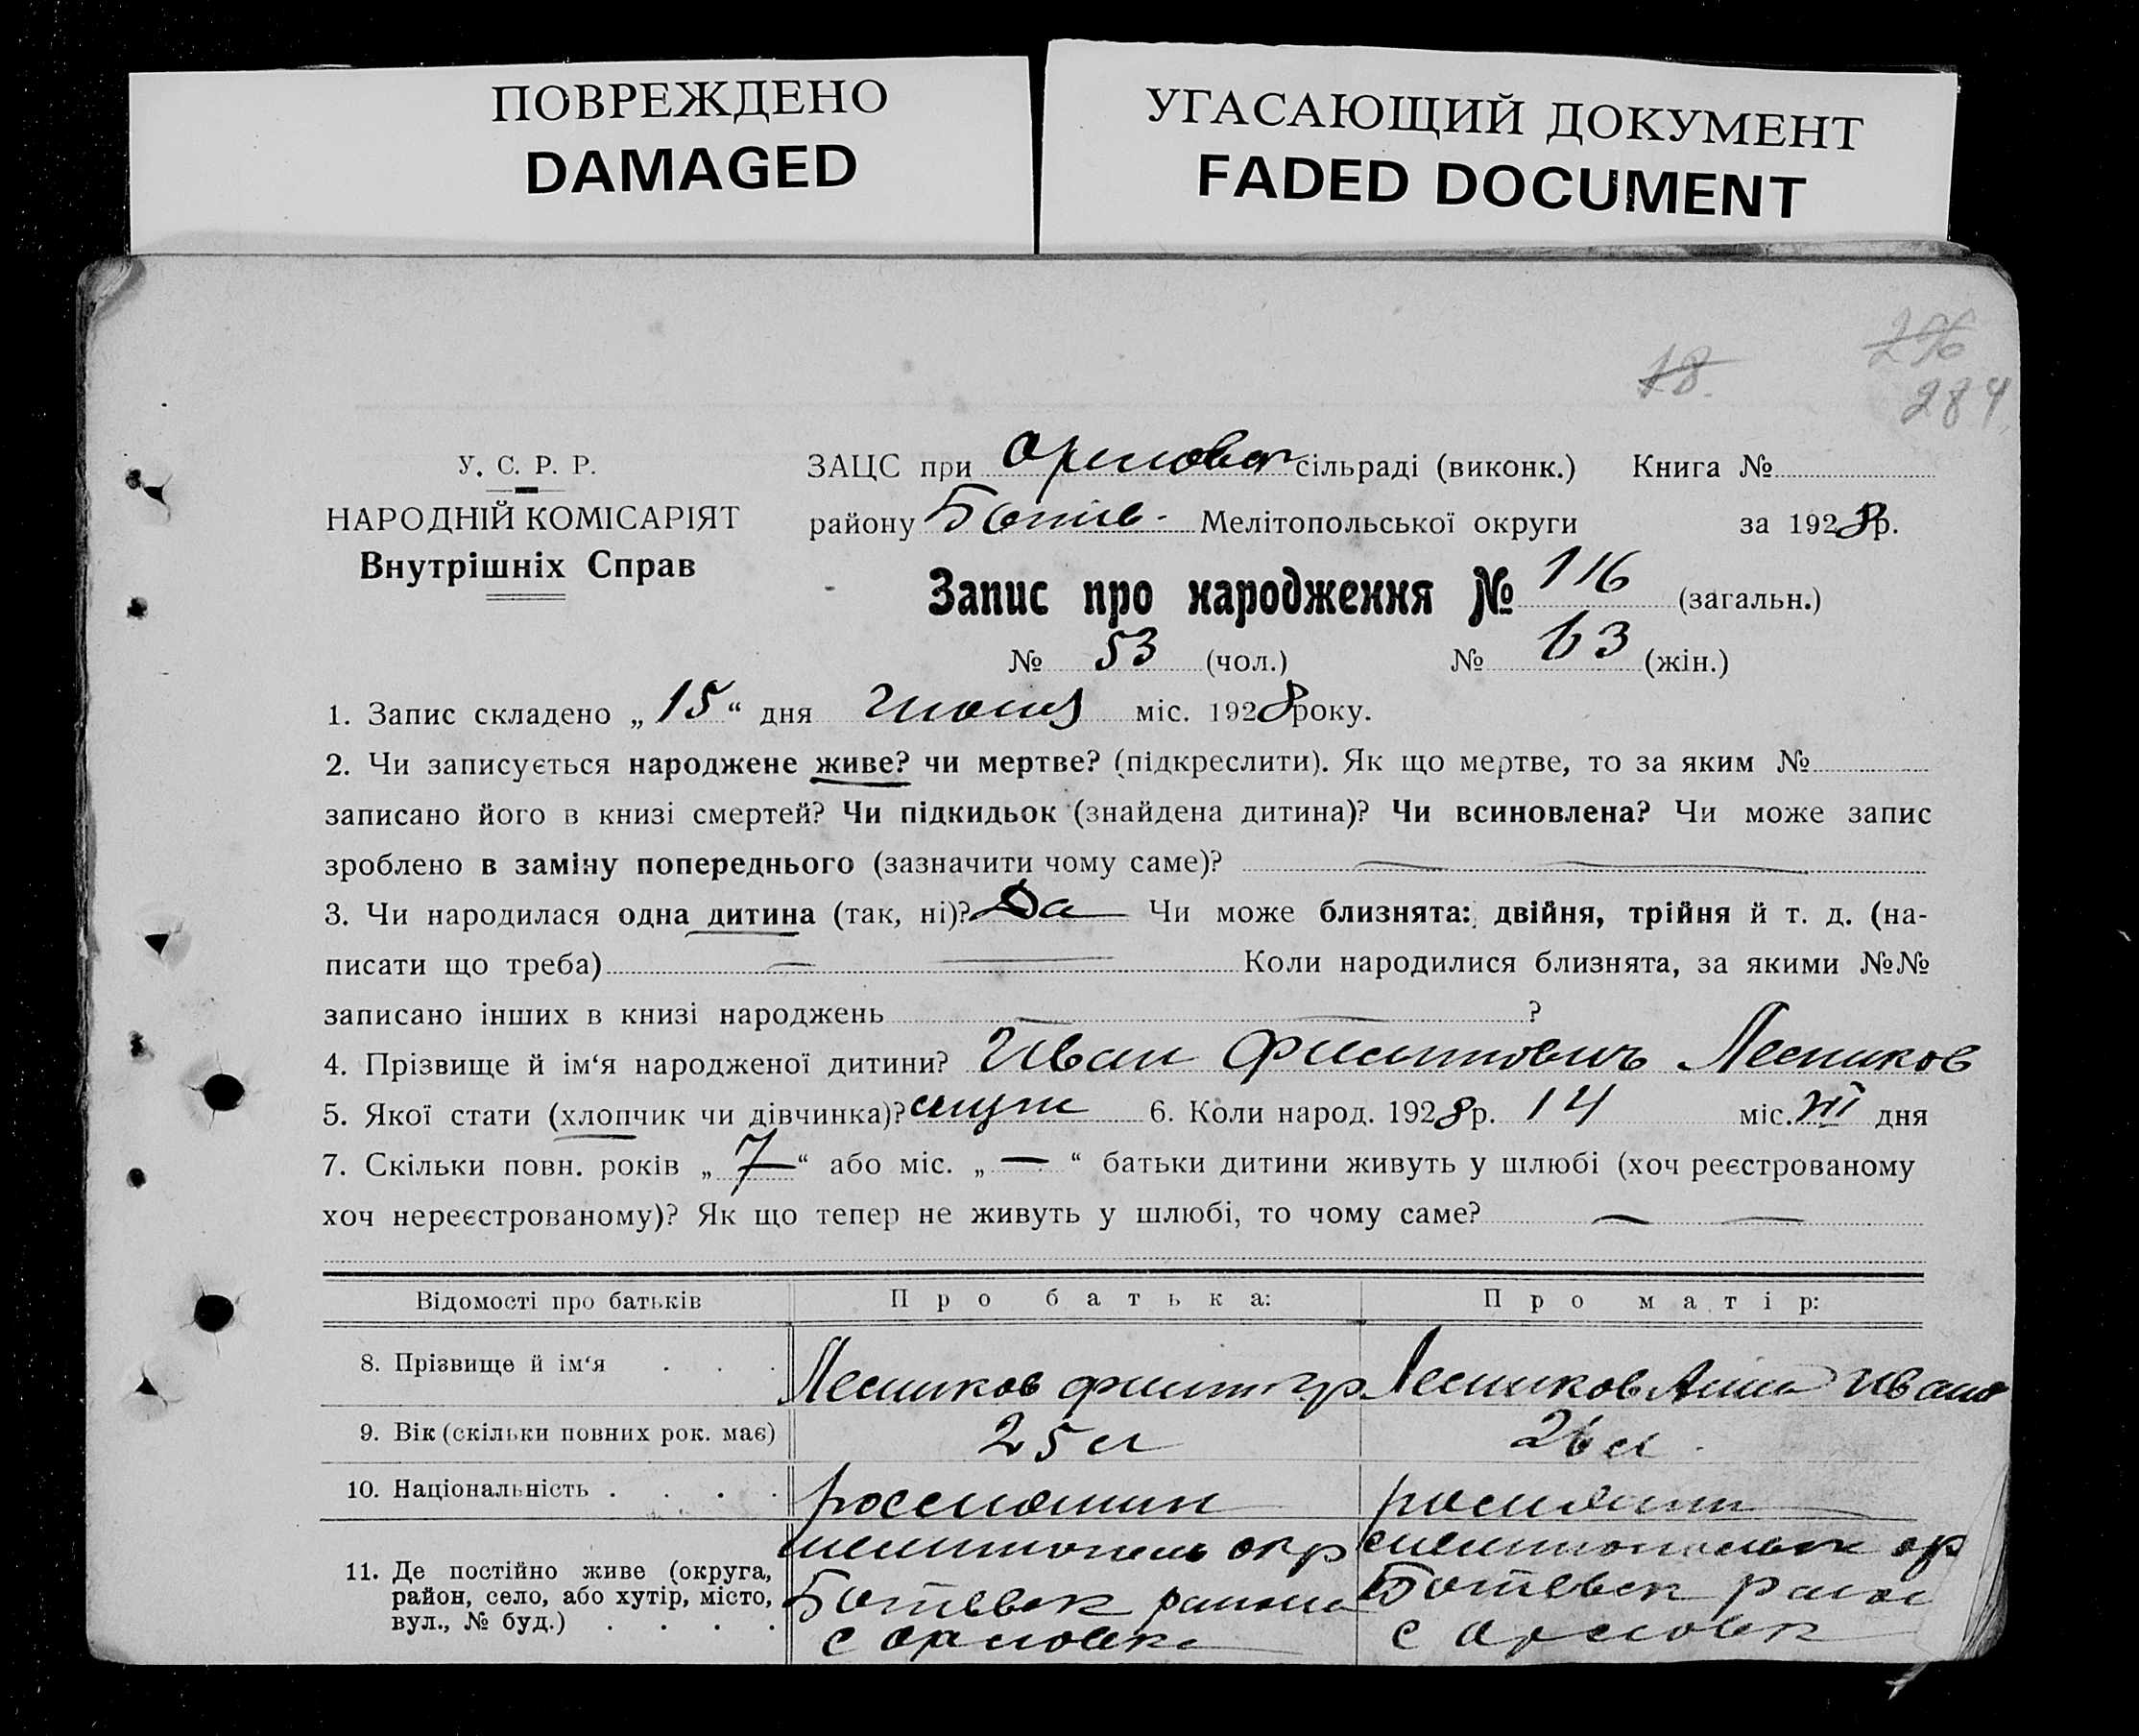 ПОВРЕЖДЕНО
DAMAGED
УГАСАЮЩИЙ ДОКУМЕНТ
FADED DOCUMENT
18.
284
У. С. Р. Р.
НАРОДНІЙ КОМІСАРІЯТ
Внутрішніх Справ
ЗАЦС при Орловск сільраді (виконк.) Книга №
району Ботів- Мелітопольської округи за 1928 р.
Запис про народження № 116 (загальн.)
№ 53 (чол.) № 63 (жін.)
1. Запис складено „15“ дня міс. 1928 року.
2. Чи записується народжене живе? чи мертве? (підкреслити). Як що мертве, то за яким №
записано його в книзі смертей? Чи підкидьок (знайдена дитина)? Чи всиновлена? Чи може запис
зроблено в заміну попереднього (зазначити чому саме)?
3. Чи народилася одна дитина (так, ні)? Да Чи може близнята: двійня, трійня й т. д. (на-
писати що треба) Коли народилися близнята, за якими №№
записано інших в книзі народжень ?
4. Прізвище й ім‘я народженої дитини? Иван Филиппович Лесников
5. Якої стати (хлопчик чи дівчинка)? 6. Коли народ. 1928 р. 14 міс. VII дня
7. Скільки повн. років „7“ або міс. „—“ батьки дитини живуть у шлюбі (хоч реєстрованому
хоч нереєстрованому)? Як що тепер не живуть у шлюбі, то чому саме?
Відомості про батьків Про батька: Про матір:
8. Прізвище й ім‘я . . . Лесников Лесников Анна Ивано
9. Вік (скільки повних рок. має) 25 л 26 л.
10. Національність . . . . россиянин
11. Де постійно живе (округа,
район, село, або хутір, місто,
вул., № буд.) . . . .
мелитополь окр
Ботевск района
с Орловка
окр
Ботевск район
с Орловк